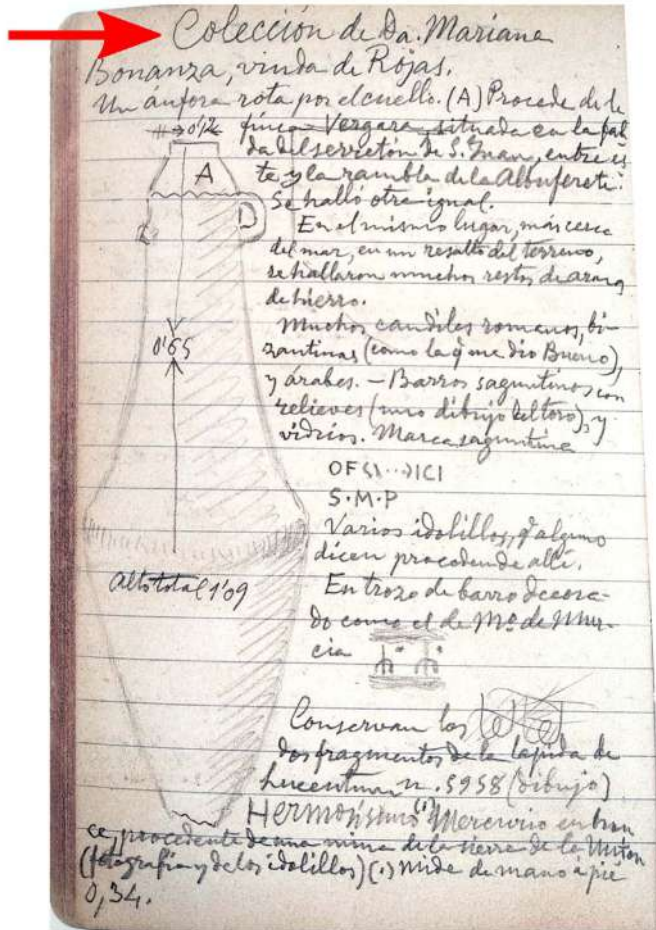 Colección de Da. Mariana
Bonanza, viuda de Rojas.
Un ánfora rota por el cuello. (A) Procede de la
0'12
finca Vergara, situada en la fal
A
da del serretón de S. Juan, entre és
te y la rambla de la Albufereta.
Se halló otra igual.
En el mismo lugar, más cerca
del mar, en un resalto del terreno,
se hallaron muchos restos de
de hierro.
Muchos candiles romanos, bi-
0'65
zantinas (como la q me dio Bueno),
y árabes. – Barros saguntinos con
relieves (uno dibujo del toro), y
vidrios. Marca saguntina
OF ICI
S·M·P
Varios idolillos, q alguno
dicen procedende allí.
Alto total 1'09
En trozo de barro decora-
do como el de Mo. de Mur-
cia
Conservan los
dos fragmentos de la lápida de
Lucentum n. 5958 (dibujo)
Hermosísimo (1) Mercurio en bron
ce, procedente de una mina de la sierra de la Unión
(fotografía y de los idolillos) (1) Mide de mano á pie
0,34.